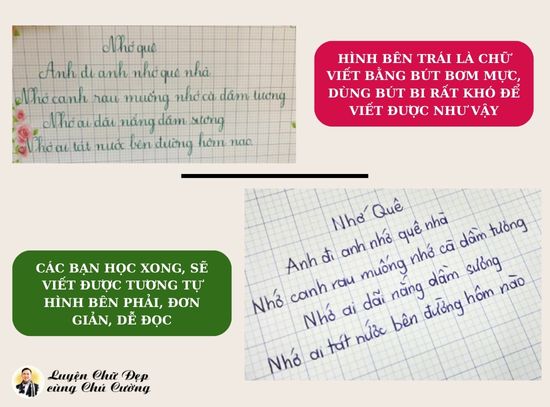 Nhớ quê
Anh đi anh nhớ quê nhà
Nhớ canh rau muống nhớ cà dầm tương
Nhớ ai dãi nắng dầm sương
Nhớ ai tát nước bên đường hôm nao
HÌNH BÊN TRÁI LÀ CHỮ
VIẾT BẰNG BÚT BƠM MỰC,
DÙNG BÚT BI RẤT KHÓ ĐỂ
VIẾT ĐƯỢC NHƯ VẬY
CÁC BẠN HỌC XONG, SẼ
VIẾT ĐƯỢC TƯƠNG TỰ
HÌNH BÊN PHẢI, ĐƠN
GIẢN, DỄ ĐỌC
Nhớ Quê
Anh đi anh nhớ quê nhà
Nhớ canh rau muống nhớ cà dầm tương
Nhớ ai dãi nắng dầm sương
Nhớ ai tát nước bên đường hôm nào
Luyện Chữ Đẹp
cùng Chú Cường